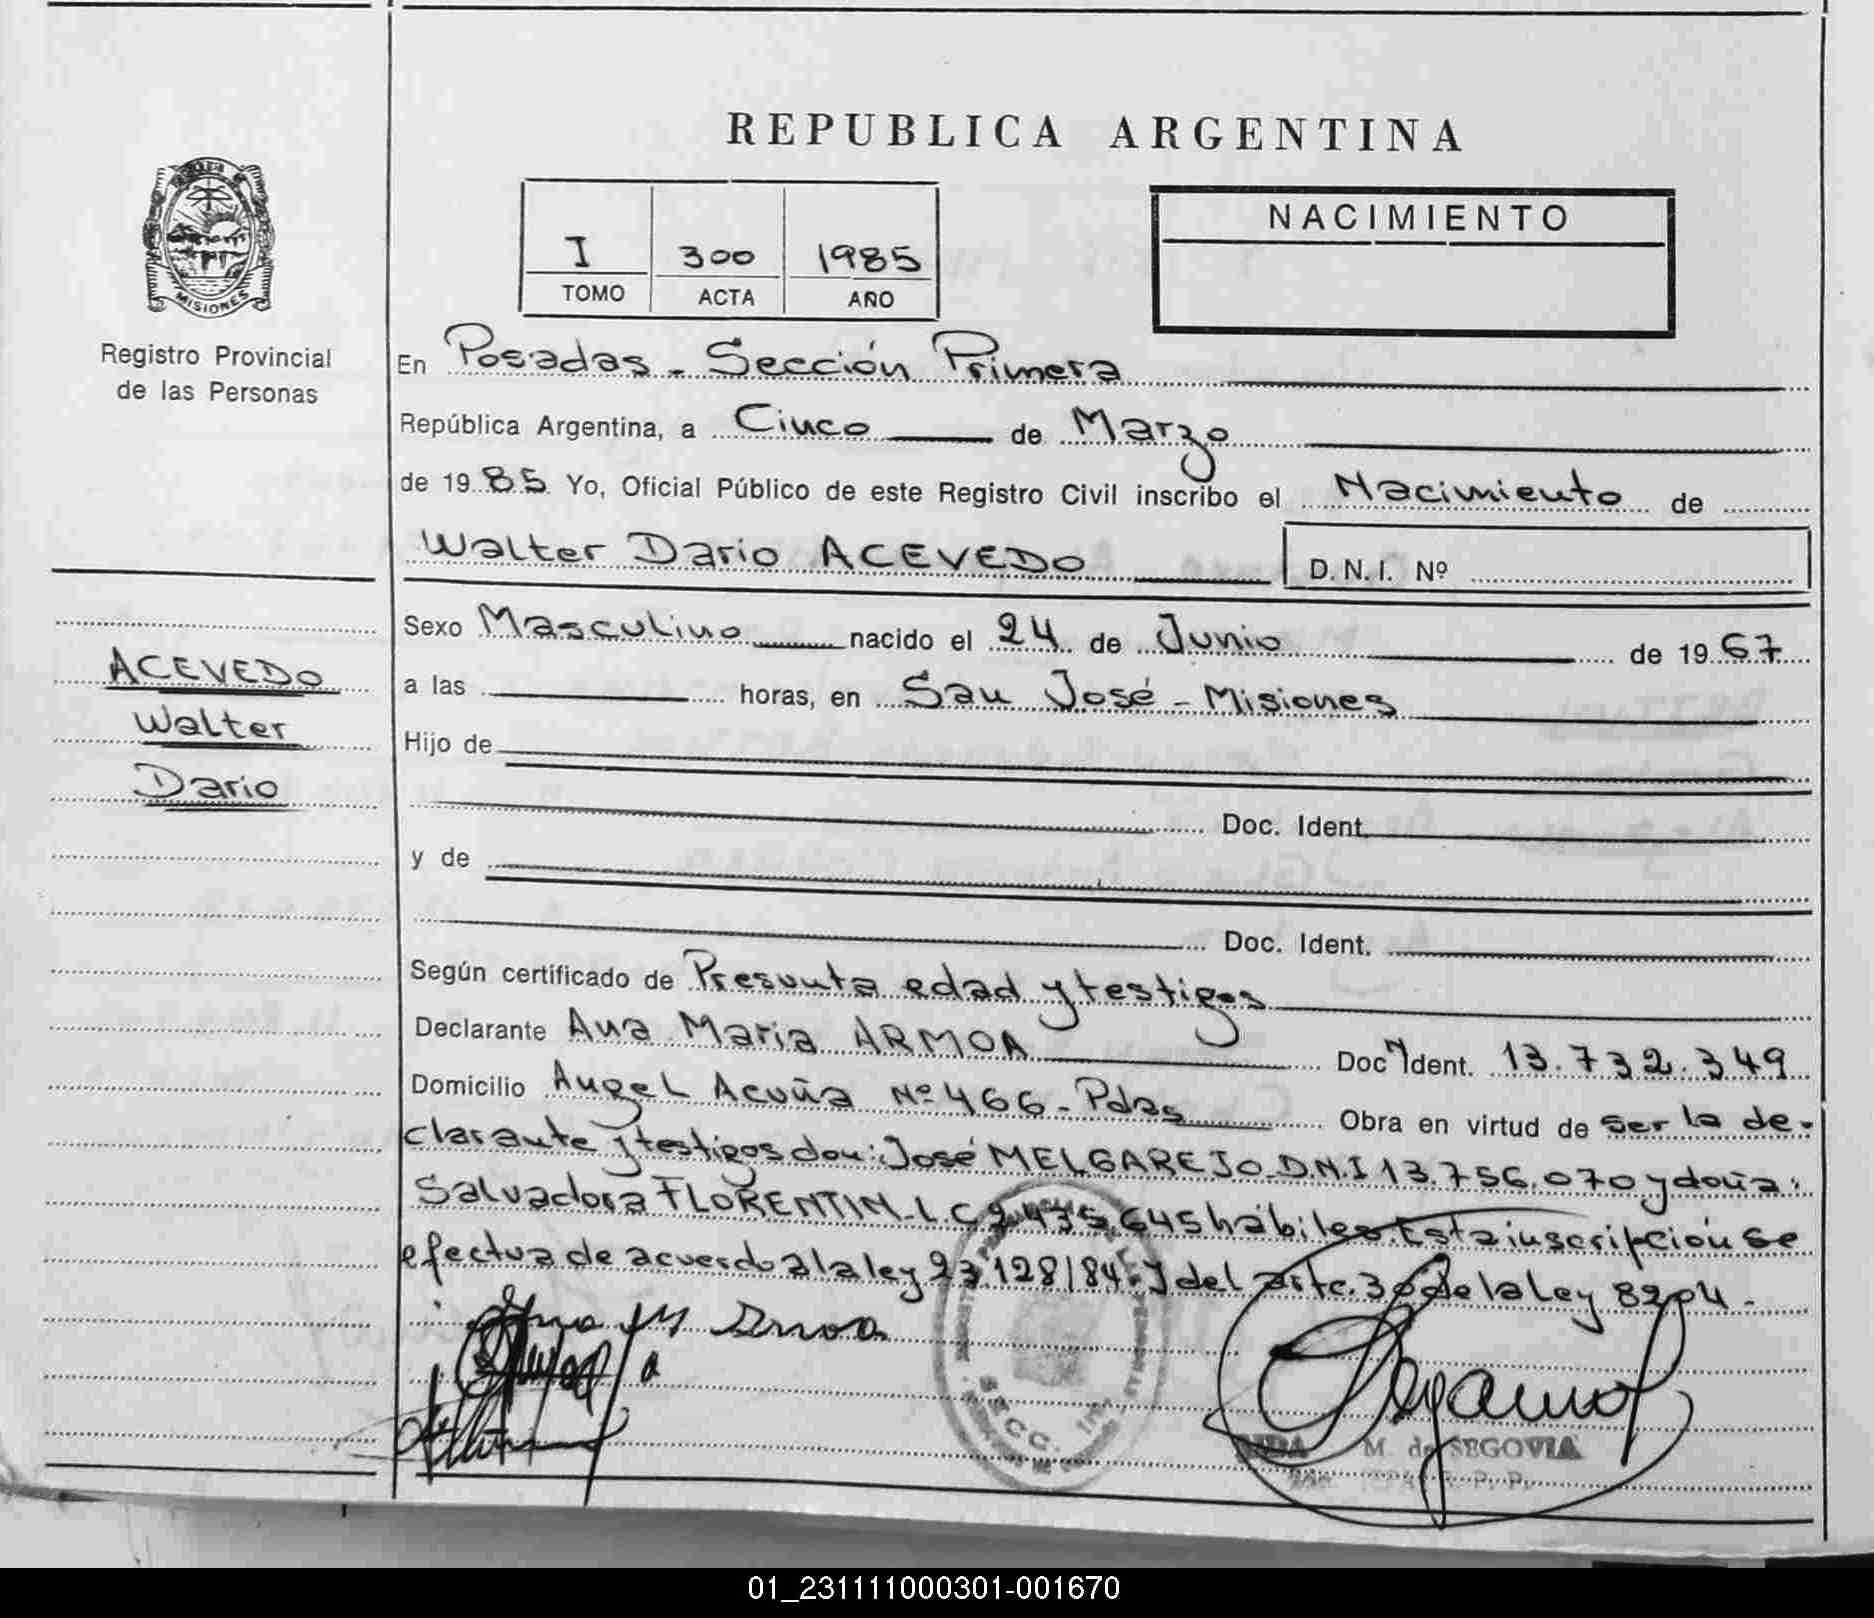 REPUBLICA ARGENTINA
MISIONES
Registro Provincial
de las Personas
I 300 1985
TOMO ACTA AÑO
NACIMIENTO
En Posadas - Sección Primera
República Argentina, a Cinco de Marzo
de 1985 Yo, Oficial Público de este Registro Civil inscribo el Nacimiento de
Walter Dario ACEVEDO D.N.I. Nº
ACEVEDO
Walter
Dario
Sexo Masculino nacido el 24 de Junio de 1967
a las horas, en San José - Misiones
Hijo de
Doc. Ident.
y de
Doc. Ident.
Según certificado de Presunta edad y testigos
Declarante Ana Maria ARMOA Doc. Ident. 13.732.349
Domicilio Angel Acuña Nº 466 - Pdas Obra en virtud de ser la de-
clarante y testigos don: José MELGAREJO D.N.I 13.756.070 y doña:
Salvadora FLORENTIN - L.C 2.435.645 hábiles. Esta inscripción se
efectua de acuerdo a la ley 23.128/84. y del artc. 30 de la Ley 8204.
Ana M Armoa
SECC. 1ra
M. de SEGOVIA
01_231111000301-001670